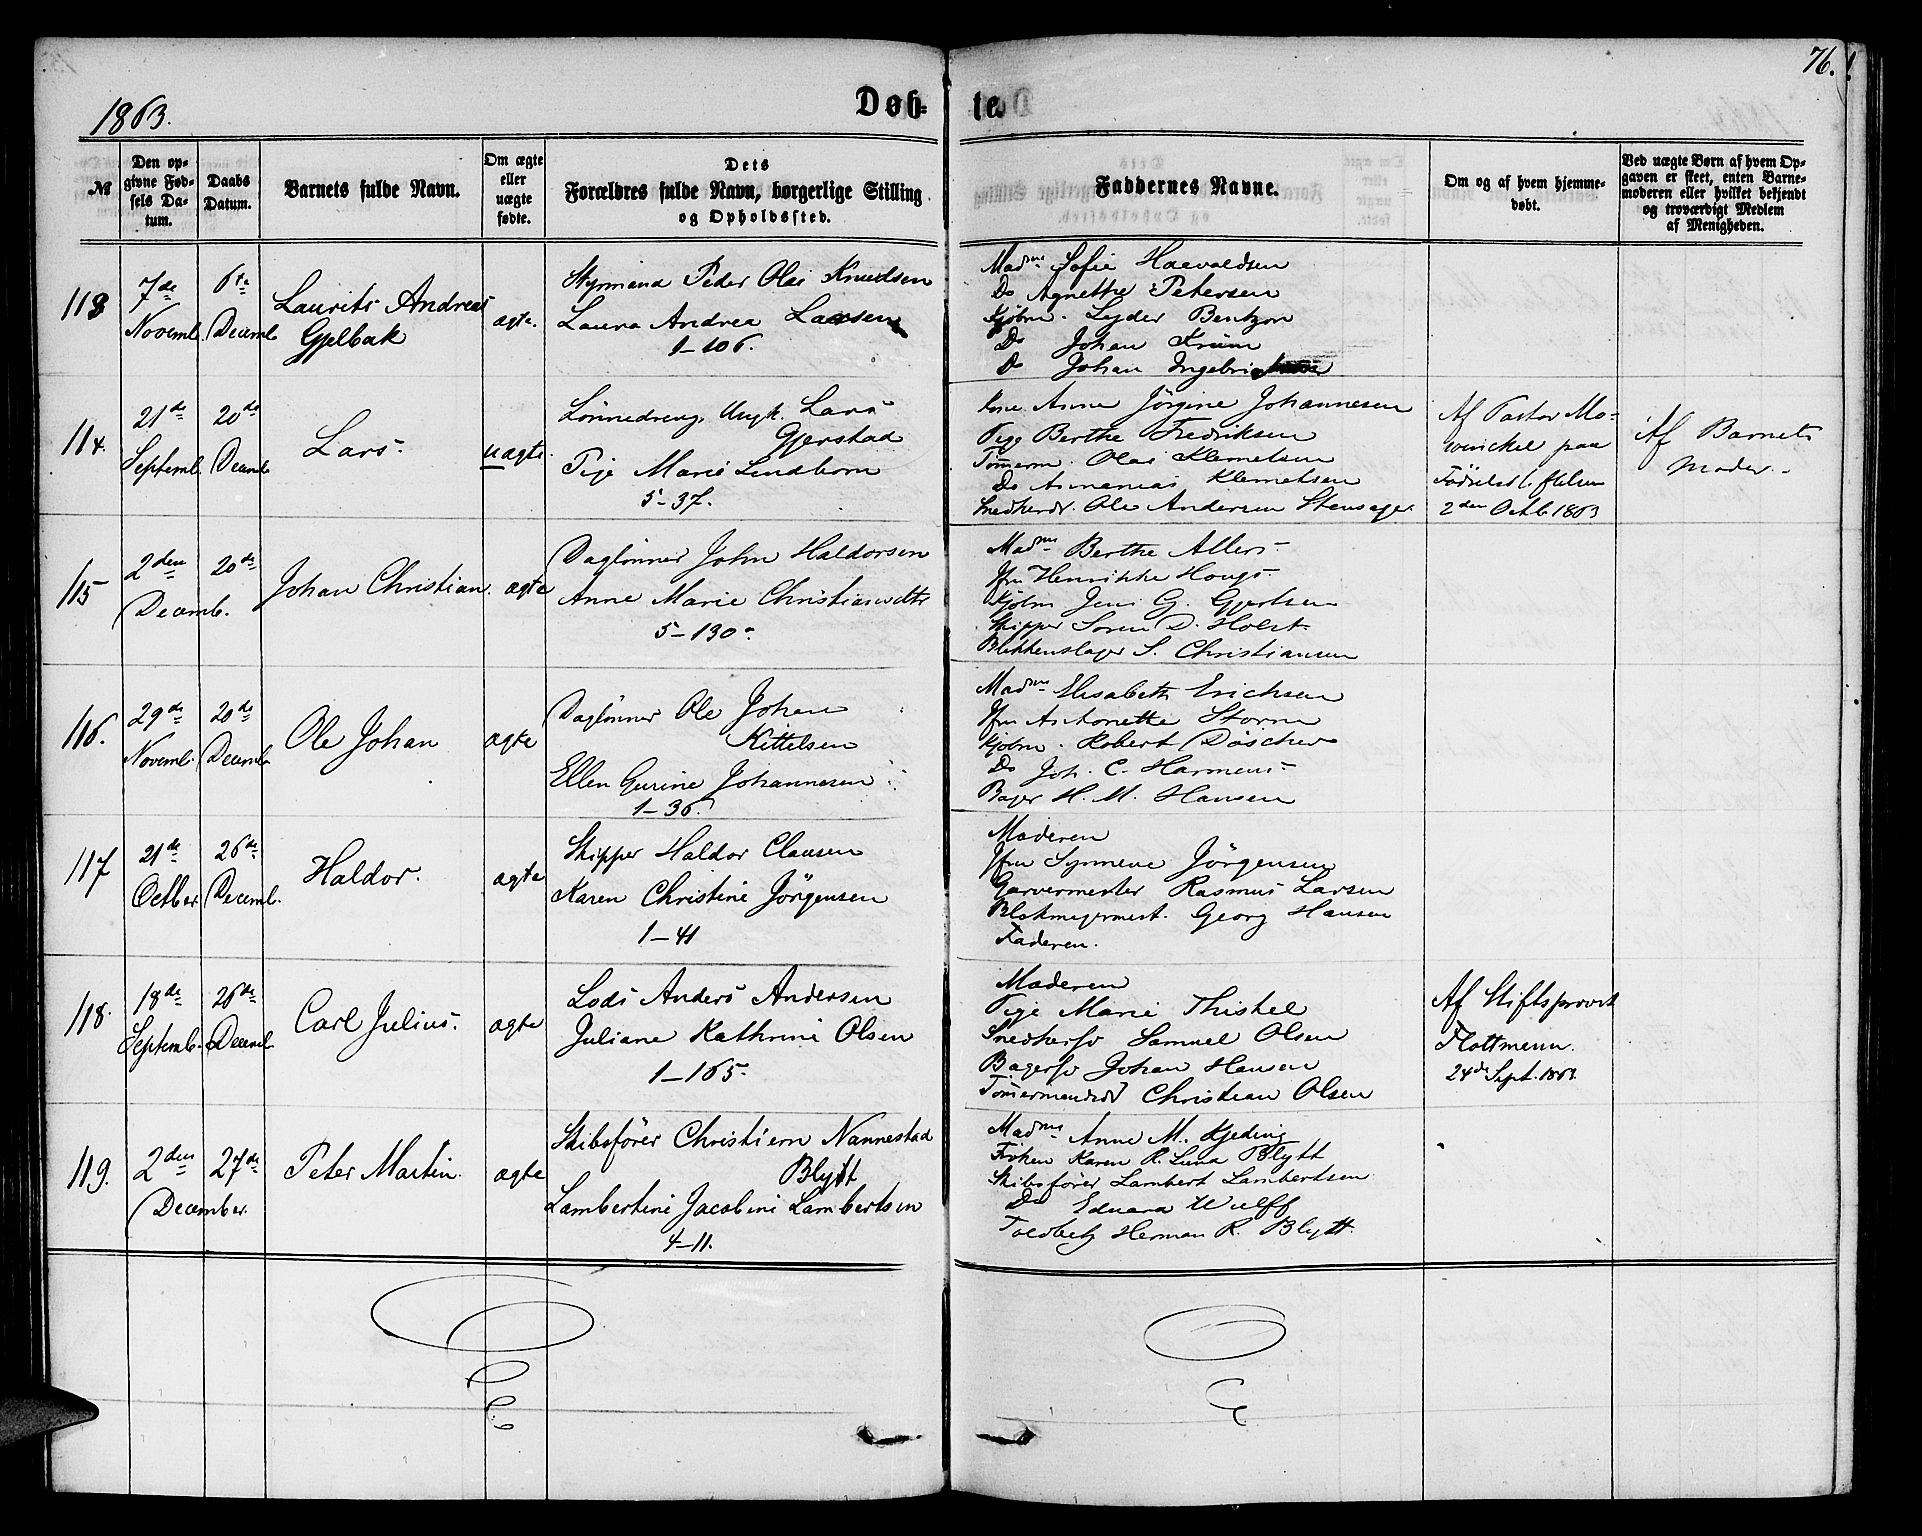 76.
1863.
Døbte
№
Den opgivne Fødsels Datum.
Daabs Datum.
Barnets fulde Navn.
Om ægte eller uægte fødte.
Dets Forældres fulde Navn, borgerlige Stilling og Opholdssted.
Faddernes Navne.
Om og af hvem hjemmedøbt.
Ved uægte Børn af hvem Opgaven er skeet, enten Barnemoderen eller hvilket bekjendt og troværdigt Medlem af Menigheden.
113
7de Novemb.
6te Decemb.
Laurits Andreas
Gjelbak
ægte.
Styrmand Peder Olai Knudsen
Laura Andrea Larsen
1-106.
Madme Sofie Haevoldsen
Do Agnethe Petersen
Kjøbm. Lyder Bentzon
Do Johan Krüm
Do Johan
114.
21de Septemb.
20de Decemb
Lars.
uægte.
Lönnedreng, Ungk. Lars
Gjerstad
Pige Marie Lindborn
5-37.
Kone Anne Jörgine Johannesen
Pige Berthe Fredriksen
Tömerm. Olai Klemetsen
Do Ananias Klemetsen
Snedkerdr. Ole Andersen Stensager
Af Pastor Mo-
winckel paa
Födselsstiftelsen
2den Octb. 1863
Af Barnets
Moder.
115
2den Decemb.
20de
Johan Christian.
ægte
Daglönner John Haldorsen
Anne Marie Christiansdtr
5-130.
Madme Berthe Allers
Jfru Henrikke Houge.
Kjöbm Jens G. Gjertsen
Skipper Soren D. Holst.
Blikkenslager S. Christiansen
116.
29de Novemb.
20de Decemb
Ole Johan
ægte
Daglönner Ole Johan
Kittelsen
Ellen Gurine Johannesen
1-36.
Madme Elisabeth Erichsen
Jfru Antonette Storm
Kjöbm. Robert Döscher
Do Joh. C. Harmens
Bager H. M. Hansen
117
21de Octber
26de Decemb.
Haldor.
ægte
Skipper Haldor Clausen
Karen Christine Jörgensen
1-41
Moderen
Jfru Synneve Jörgensen
Garvermester Rasmus Larsen
Blokmagermest. Georg Hansen
Faderen.
118.
18de Septemb.
26de Decemb.
Carl Julius.
ægte
Lods Anders Andersen
Juliane Kathrine Olsen
1-165.
Moderen
Pige Marie Thistel
Snedkersv Samuel Olsen
Bagersv Johan Hansen
Tömermandsdr Christian Olsen
Af Stiftsprovst
Flottmann.
24de Sept. 1863.
119.
2den December.
27de
Peter Martin.
ægte
Skibsförer Christiern Nannestad
Blytt
Lambertine Jacobine Lambertsen
4-11.
Madme Anne M. Kjeding
Fröken Karen R. Blytt
Skibsförer Lambert Lambertsen
Do Eduard Wulff
Toldbetj Herman R. Blytt.